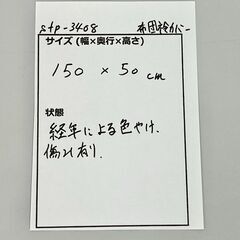 stp-3408 布団袴カバー
サイズ (幅×奥行×高さ)
150 × 50 cm
状態
経年による色やけ.
傷み有り.